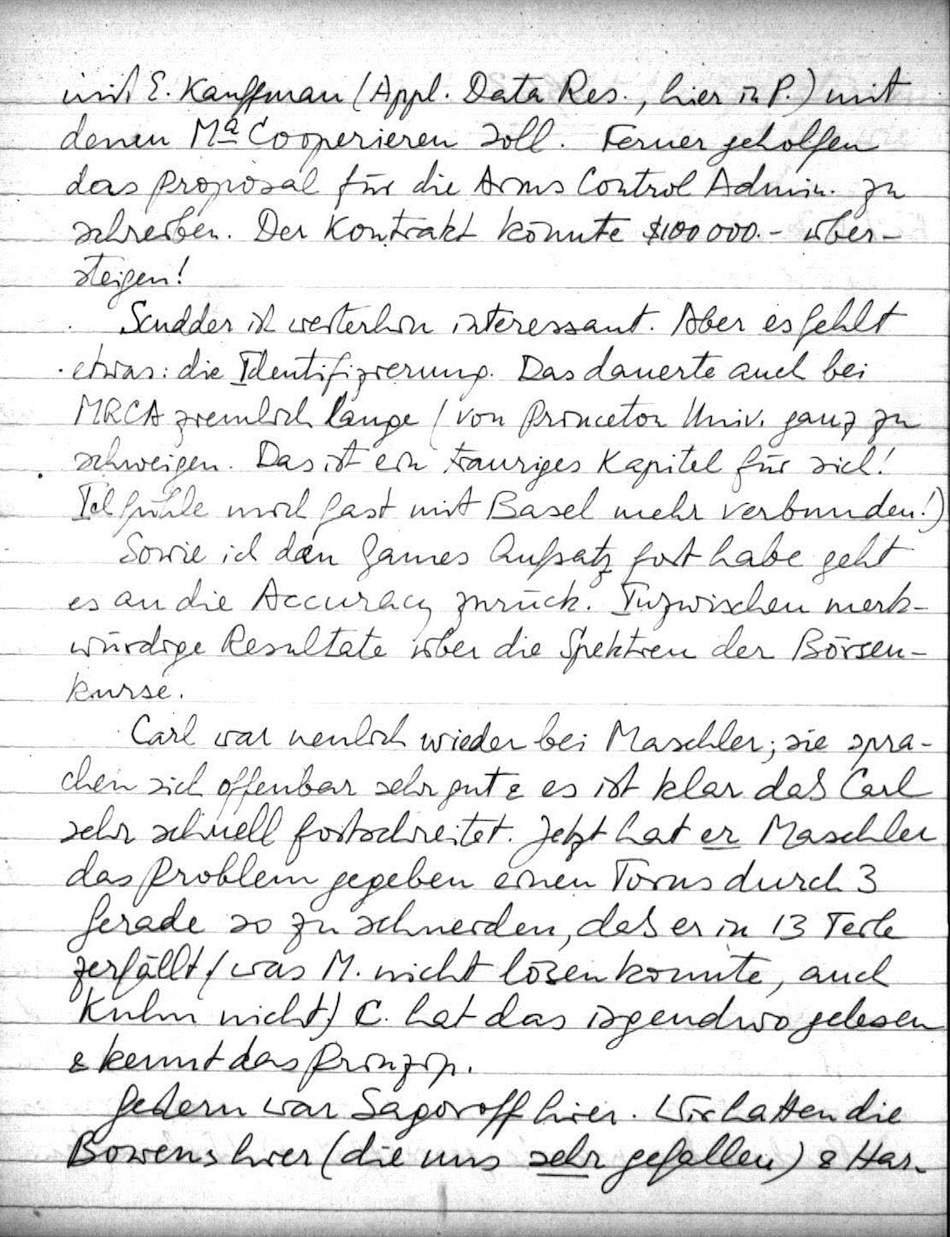 mit E. Kauffman (Appl. Data Res., hier in P.) mit
denen Ma Cooperieren soll. Ferner geholfen
das proposal für die Arms Control Admin. zu
schreiben. Der Kontrakt könnte $100 000.- über-
steigen!
Scudder ist weiterhin interessant. Aber es fehlt
etwas: die Identifizierung. Das dauerte auch bei
MRCA ziemlich lange (von Princeton Univ. ganz zu
schweigen. Das ist ein trauriges Kapitel für sich!
Ich fühle mich fast mit Basel mehr verbunden!)
Sowie ich den Games Aufsatz fort habe geht
es an die Accuracy zurück. Inzwischen merk-
würdige Resultate über die Spektren der Börsen-
kurse.
Carl war neulich wieder bei Maschler; sie spra-
chen sich offenbar sehr gut & es ist klar daß Carl
sehr schnell fortschreitet. Jetzt hat er Maschler
das Problem gegeben einen Torus durch 3
Gerade so zu schneiden, daß er in 13 Teile
zerfällt (was M. nicht lösen konnte, auch
Kuhn nicht) C. hat das irgendwo gelesen
& kennt das Prinzip.
Gestern war Sagoroff hier. Wir hatten die
Bowens hier (die uns sehr gefallen) & Har-